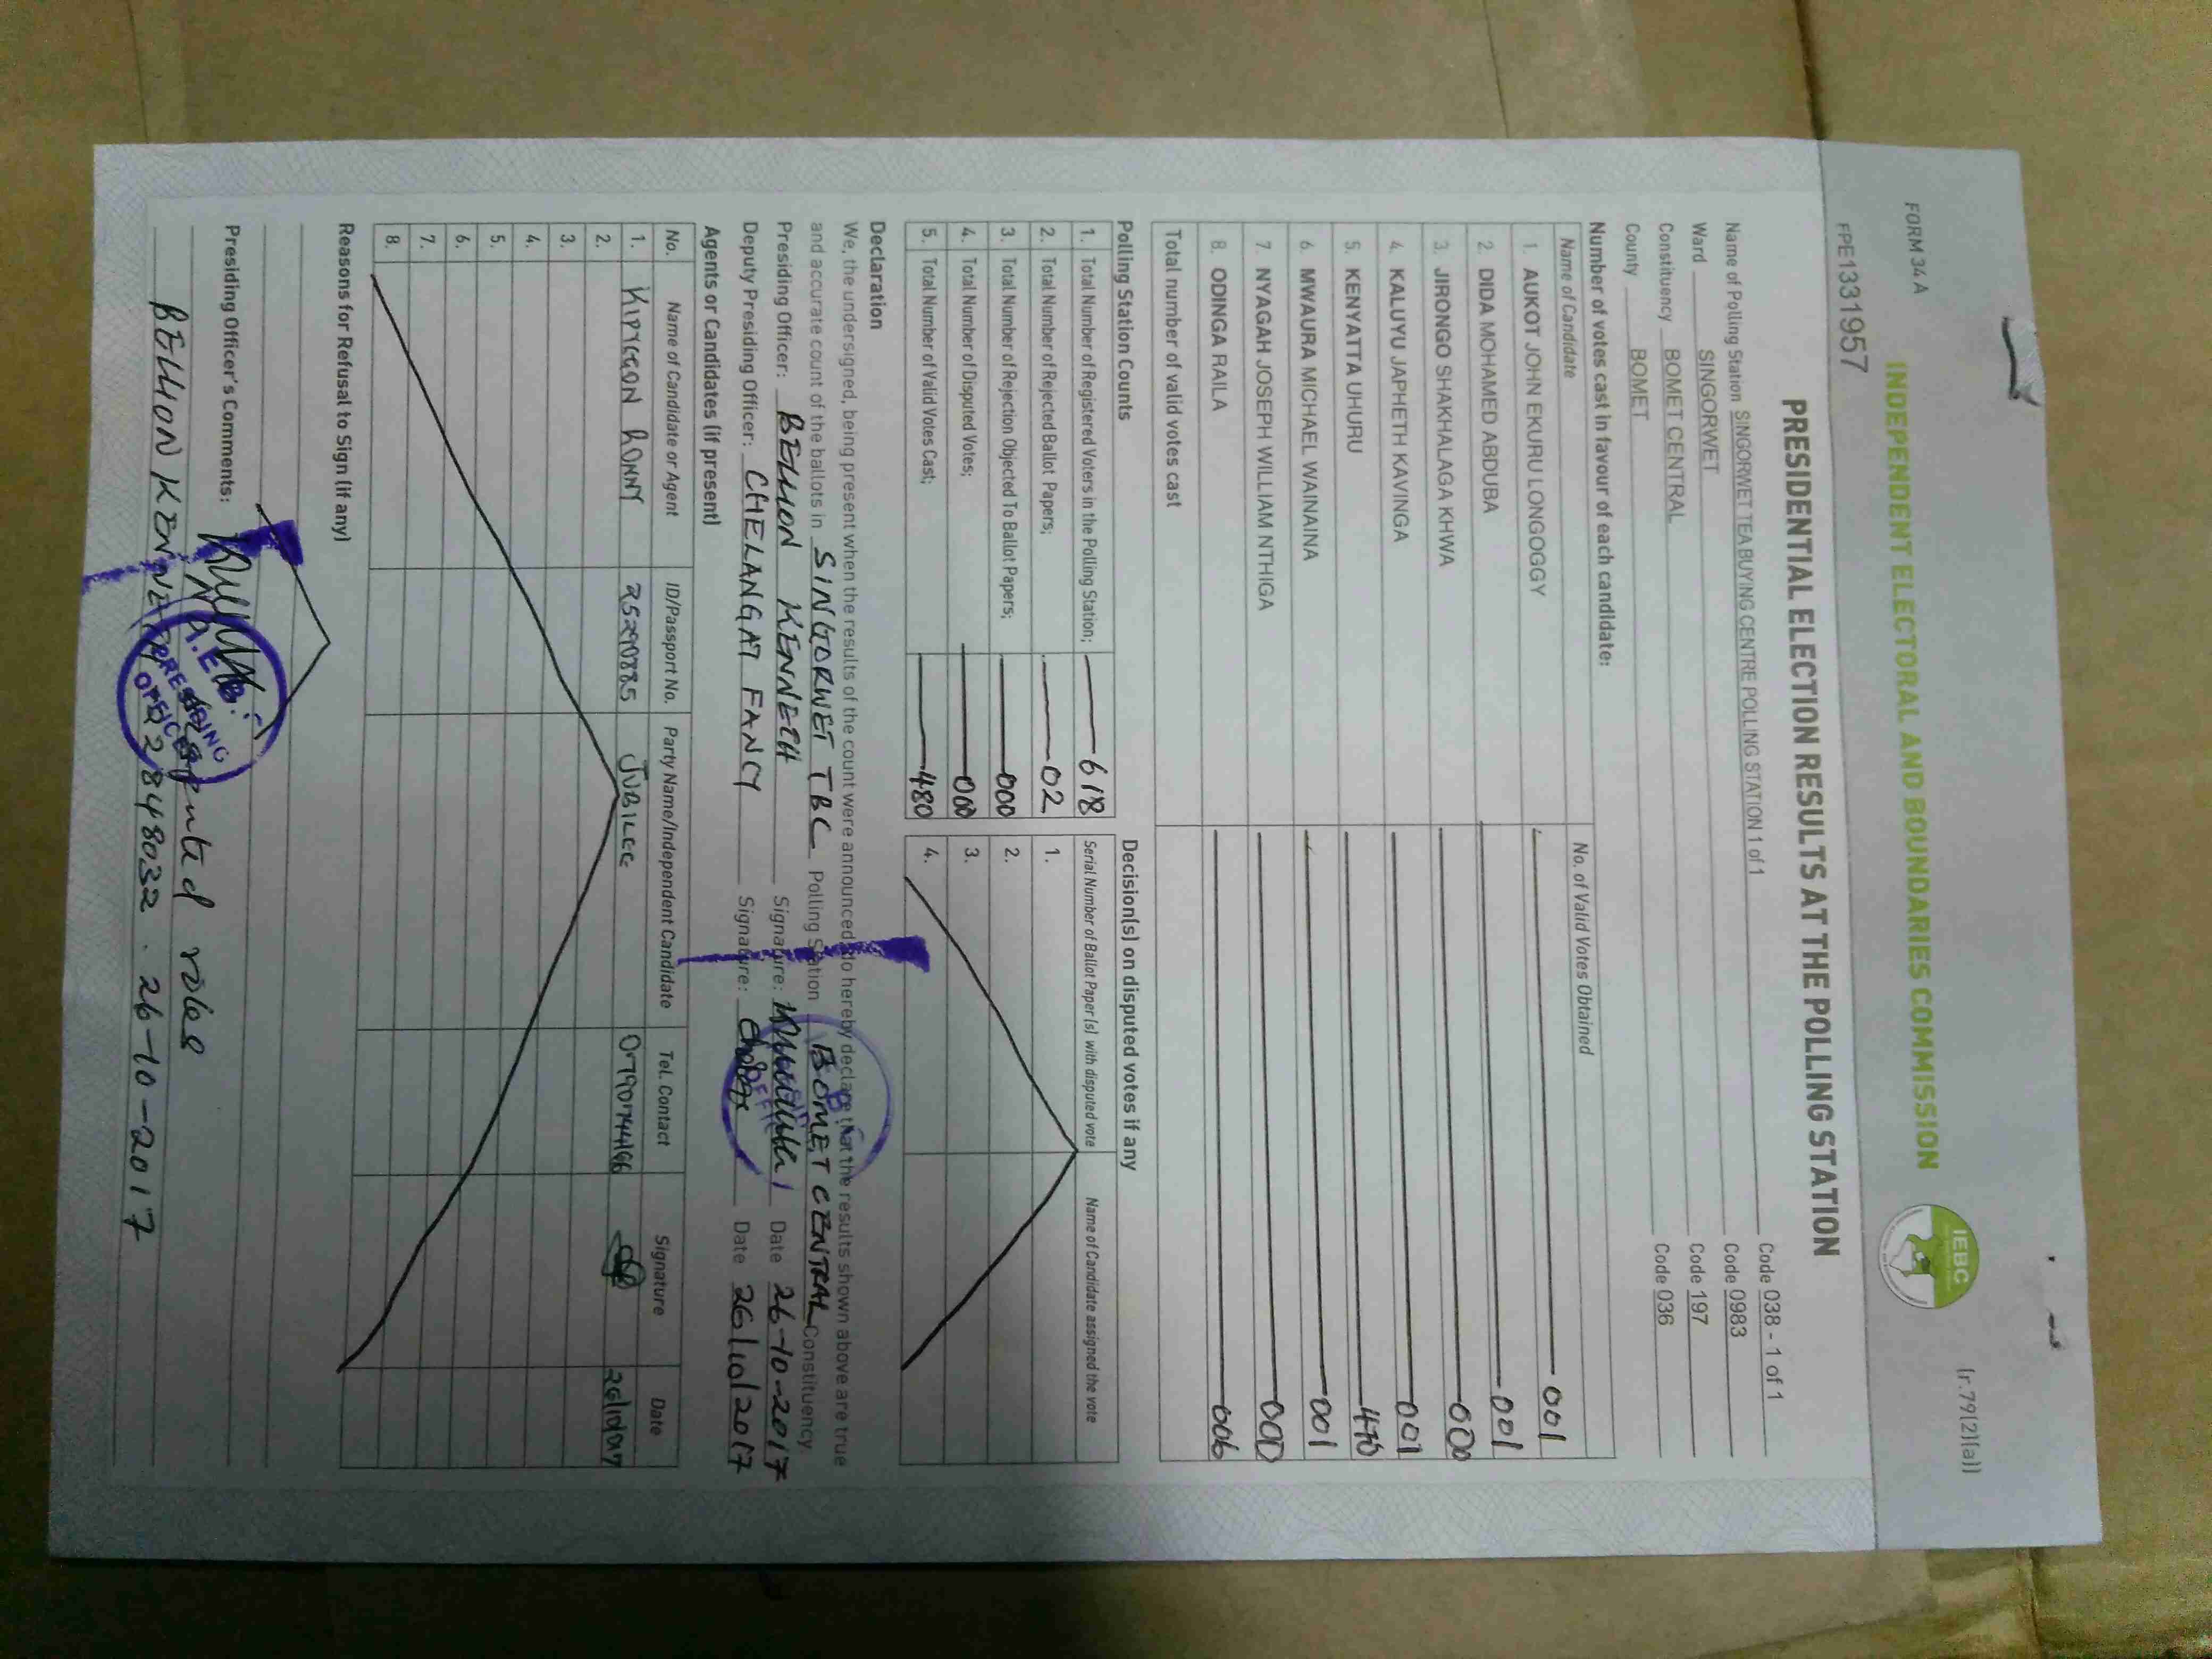 FORM 34 A
(r.79(2)(a))
INDEPENDENT ELECTORAL AND BOUNDARIES COMMISSION
IEBC
FPE1331957
PRESIDENTIAL ELECTION RESULTS AT THE POLLING STATION
Name of Polling Station SINGORWET TEA BUYING CENTRE POLLING STATION 1 of 1 Code 038 - 1 of 1
Ward SINGORWET Code 0983
Constituency BOMET CENTRAL Code 197
County BOMET Code 036
Number of votes cast in favour of each candidate:
Name of Candidate No. of Valid Votes Obtained
1. AUKOT JOHN EKURU LONGOGGY 001
2. DIDA MOHAMED ABDUBA 001
3. JIRONGO SHAKHALAGA KHWA 000
4. KALUYU JAPHETH KAVINGA 001
5. KENYATTA UHURU 470
6. MWAURA MICHAEL WAINAINA 001
7. NYAGAH JOSEPH WILLIAM NTHIGA 000
8. ODINGA RAILA 006
Total number of valid votes cast
Polling Station Counts
1. Total Number of Registered Voters in the Polling Station; 618
2. Total Number of Rejected Ballot Papers; 02
3. Total Number of Rejection Objected To Ballot Papers; 000
4. Total Number of Disputed Votes; 000
5. Total Number of Valid Votes Cast; 480
Decision(s) on disputed votes if any
Serial Number of Ballot Paper (s) with disputed vote Name of Candidate assigned the vote
1.
2.
3.
4.
Declaration
We, the undersigned, being present when the results of the count were announced do hereby declare that the results shown above are true
and accurate count of the ballots in SINGORWET TBC Polling Station BOMET CENTRAL Constituency
Presiding Officer: BELLION KENNETH Signature: Date 26-10-2017
Deputy Presiding Officer: CHELANGAT FANCY Signature: Date 26/10/2017
Agents or Candidates (if present)
No. Name of Candidate or Agent ID/Passport No. Party Name/Independent Candidate Tel. Contact Signature Date
1. KIPYEGON RONNY 25290885 JUBILEE 0790744166 26/10/2017
2.
3.
4.
5.
6.
7.
8.
Reasons for Refusal to Sign (if any)
Presiding Officer's Comments:
rules
BELLION KENNETH 22848032. 26-10-2017
PRESIDING